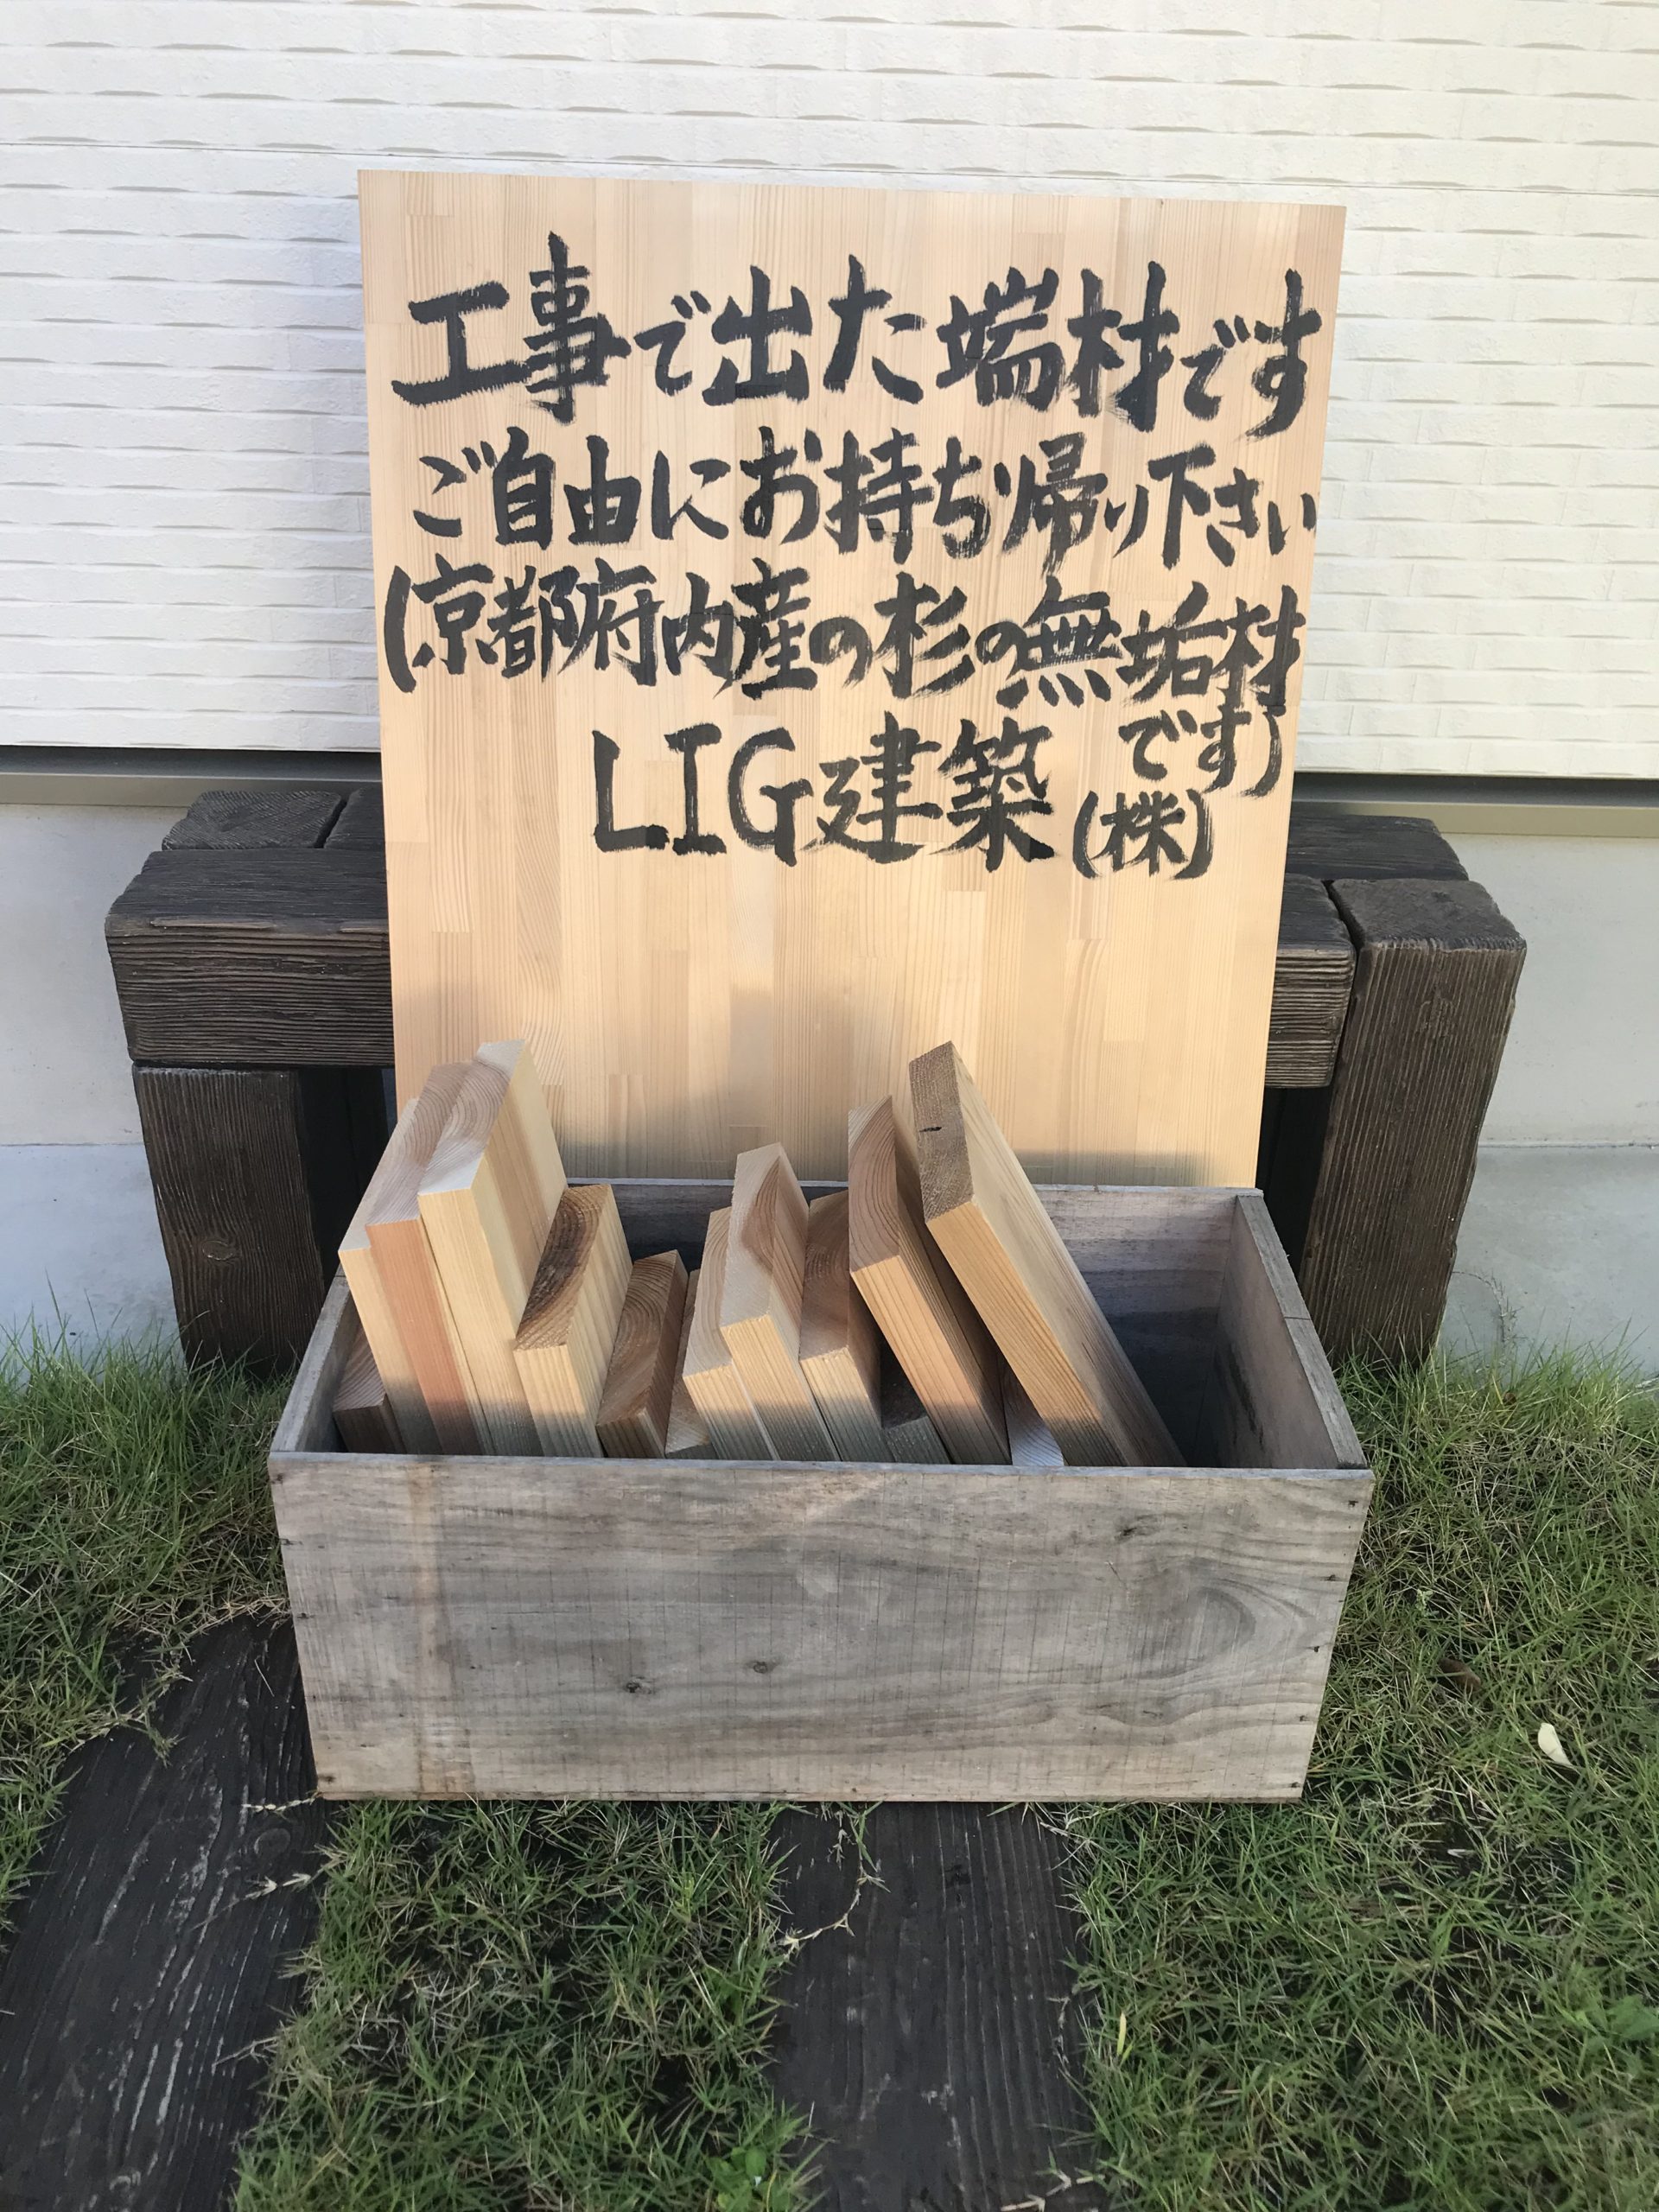 工事で出た端材です
ご自由にお持ち帰り下さい
(京都府内産の杉の無垢材
です)
LIG建築(株)